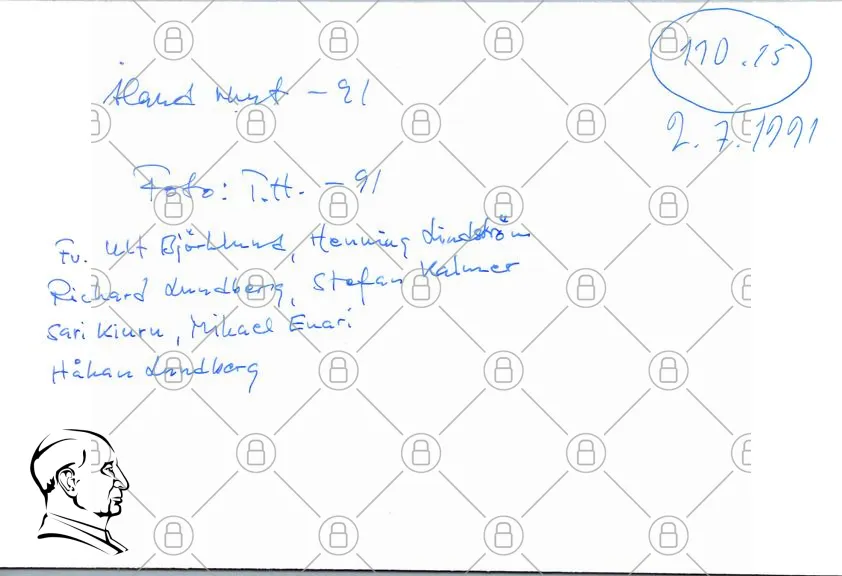 110.15
Åland runt - 91
2.7.1991
Foto: T.H. - 91
Fv. Ulf Björklund, Henning Lindström
Richard Lundberg, Stefan Kalmer
Sari Kiuru, Mikael Enari
Håkan Lundberg